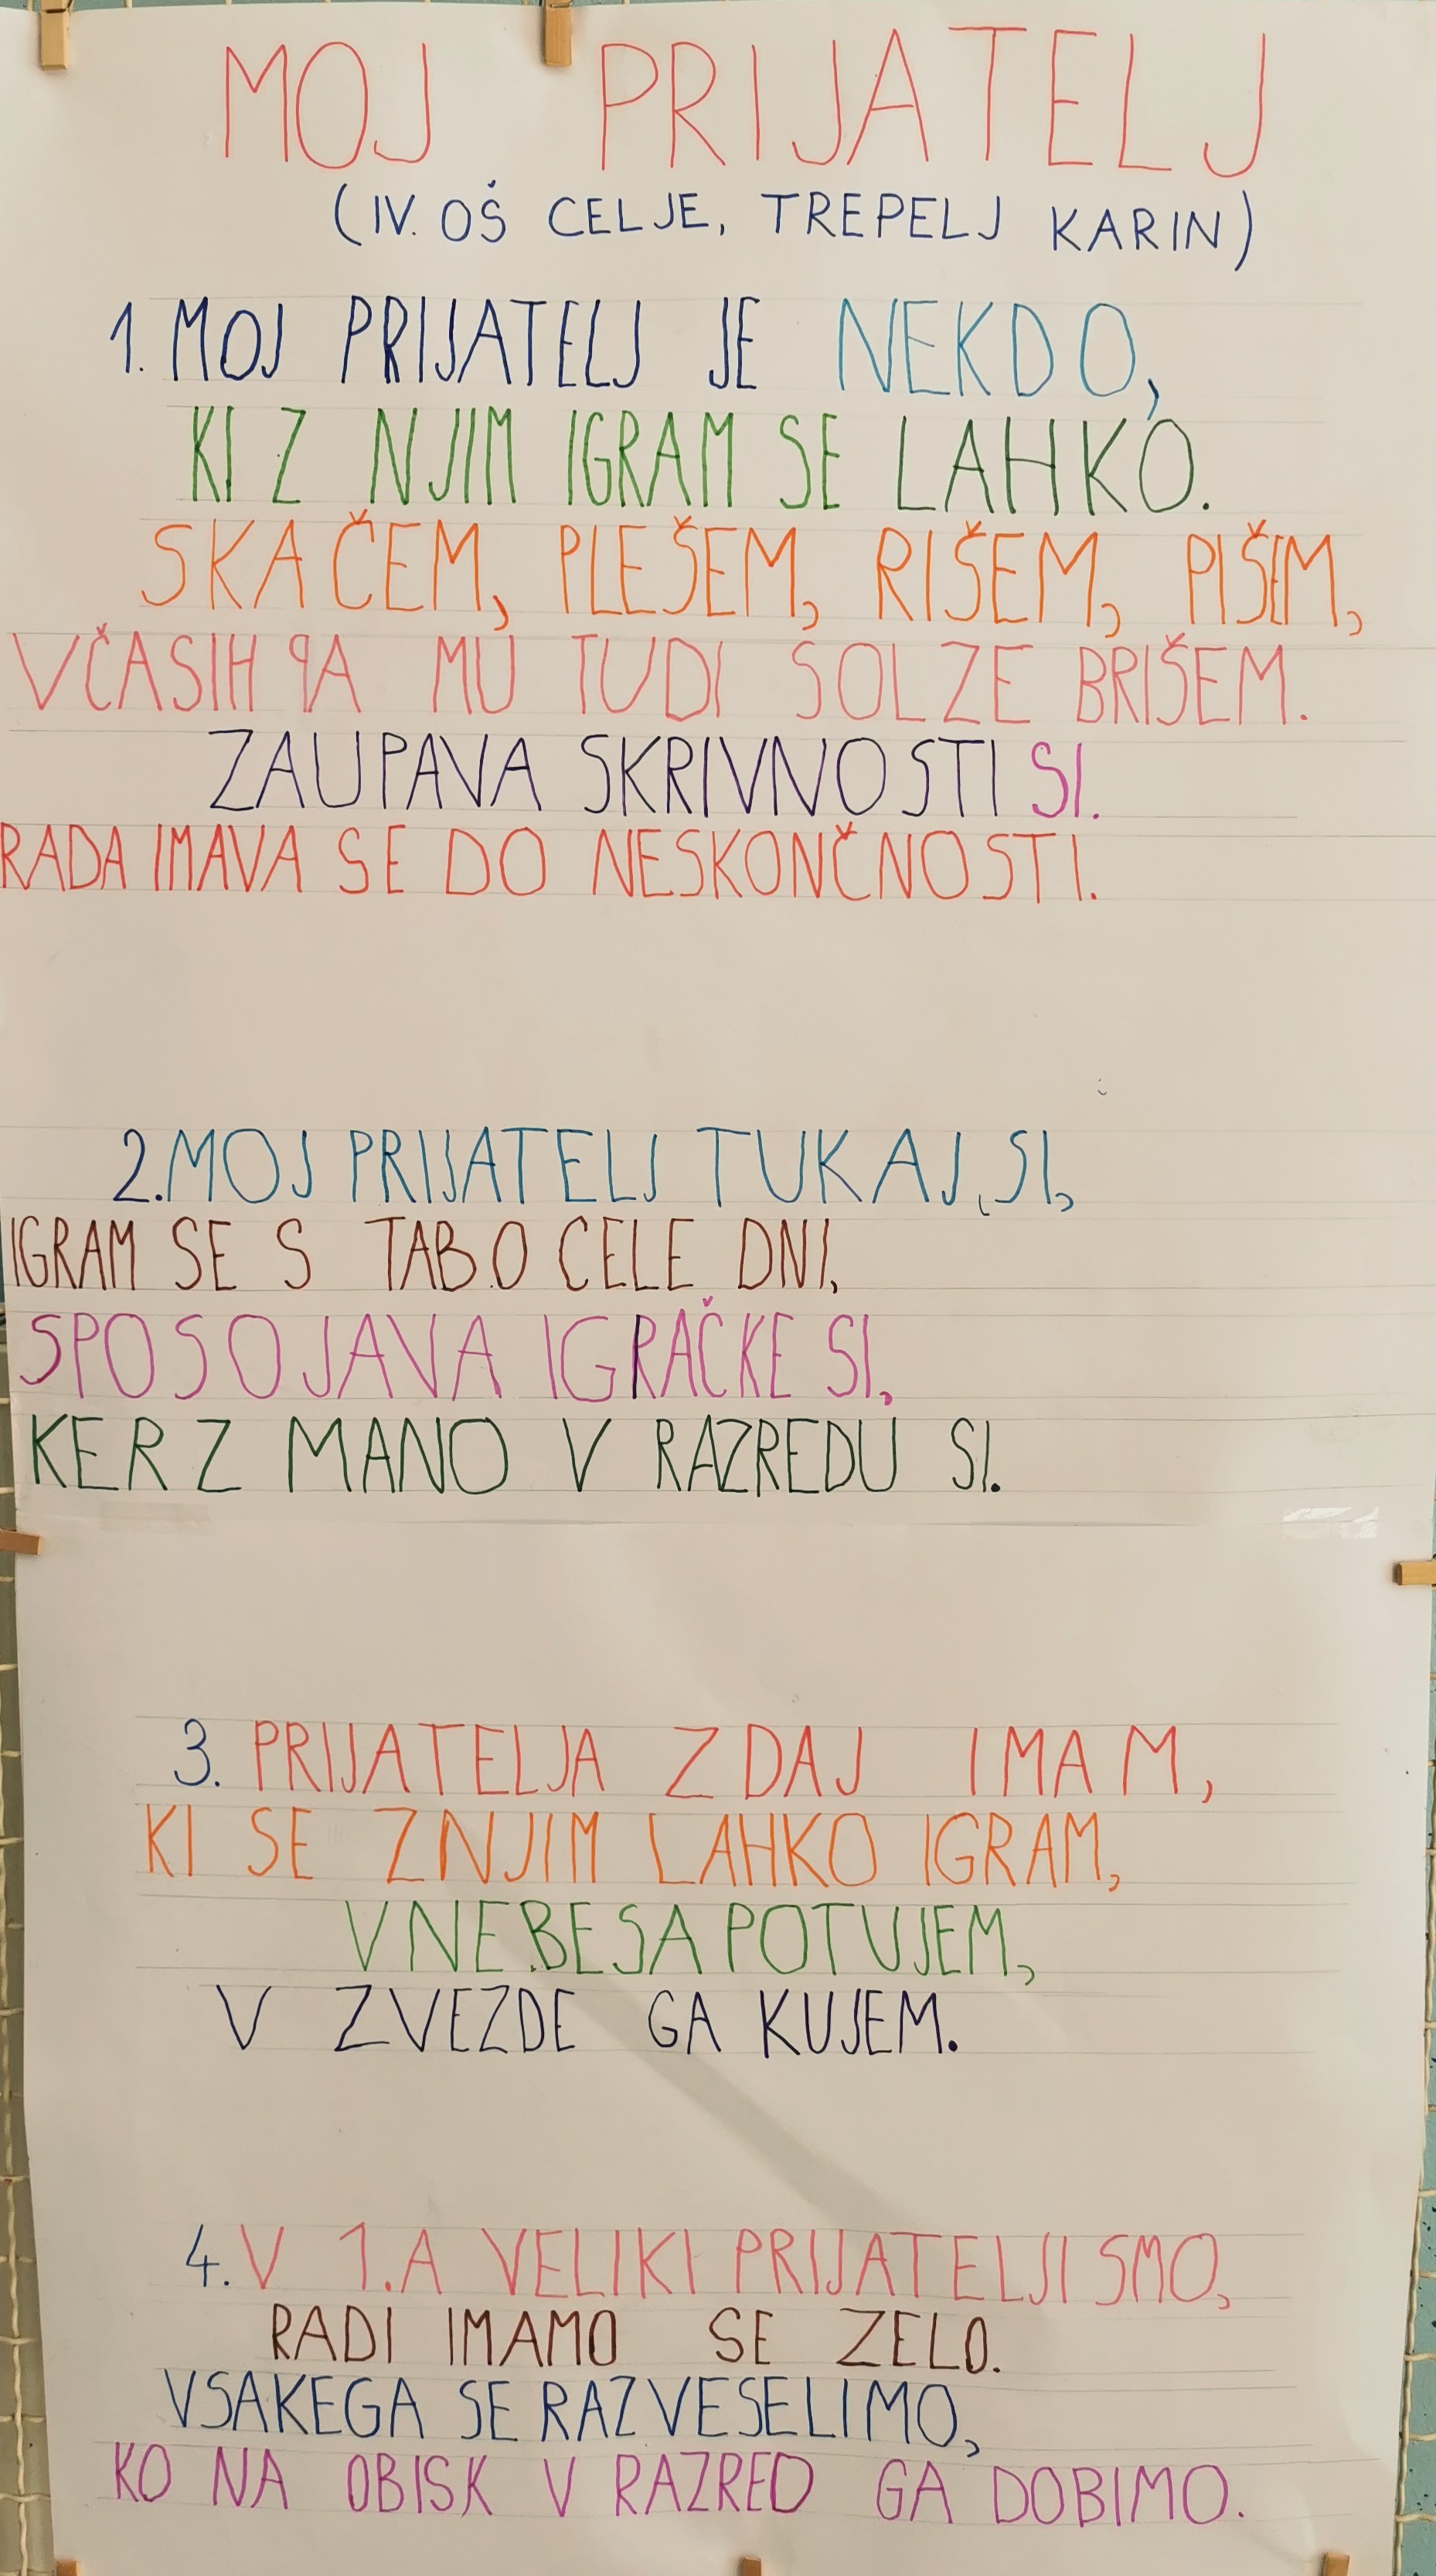 MOJ PRIJATELJ
(IV. OŠ CELJE, TREPELJ KARIN)
1. MOJ PRIJATELJ JE NEKDO,
KI Z NJIM IGRAM SE LAHKO.
SKAČEM, PLEŠEM, RIŠEM, PIŠEM,
VČASIH PA MU TUDI SOLZE BRIŠEM.
ZAUPAVA SKRIVNOSTI SI.
RADA IMAVA SE DO NESKONČNOSTI.
2. MOJ PRIJATELJ TUKAJ SI,
IGRAM SE S TABO CELE DNI,
SPOSOJAVA IGRAČKE SI,
KER Z MANO V RAZREDU SI.
3. PRIJATELJA ZDAJ IMAM,
KI SE Z NJIM LAHKO IGRAM,
V NEBESA POTUJEM,
V ZVEZDE GA KUJEM.
4. V 1.A VELIKI PRIJATELJI SMO,
RADI IMAMO SE ZELO.
VSAKEGA SE RAZVESELIMO,
KO NA OBISK V RAZRED GA DOBIMO.